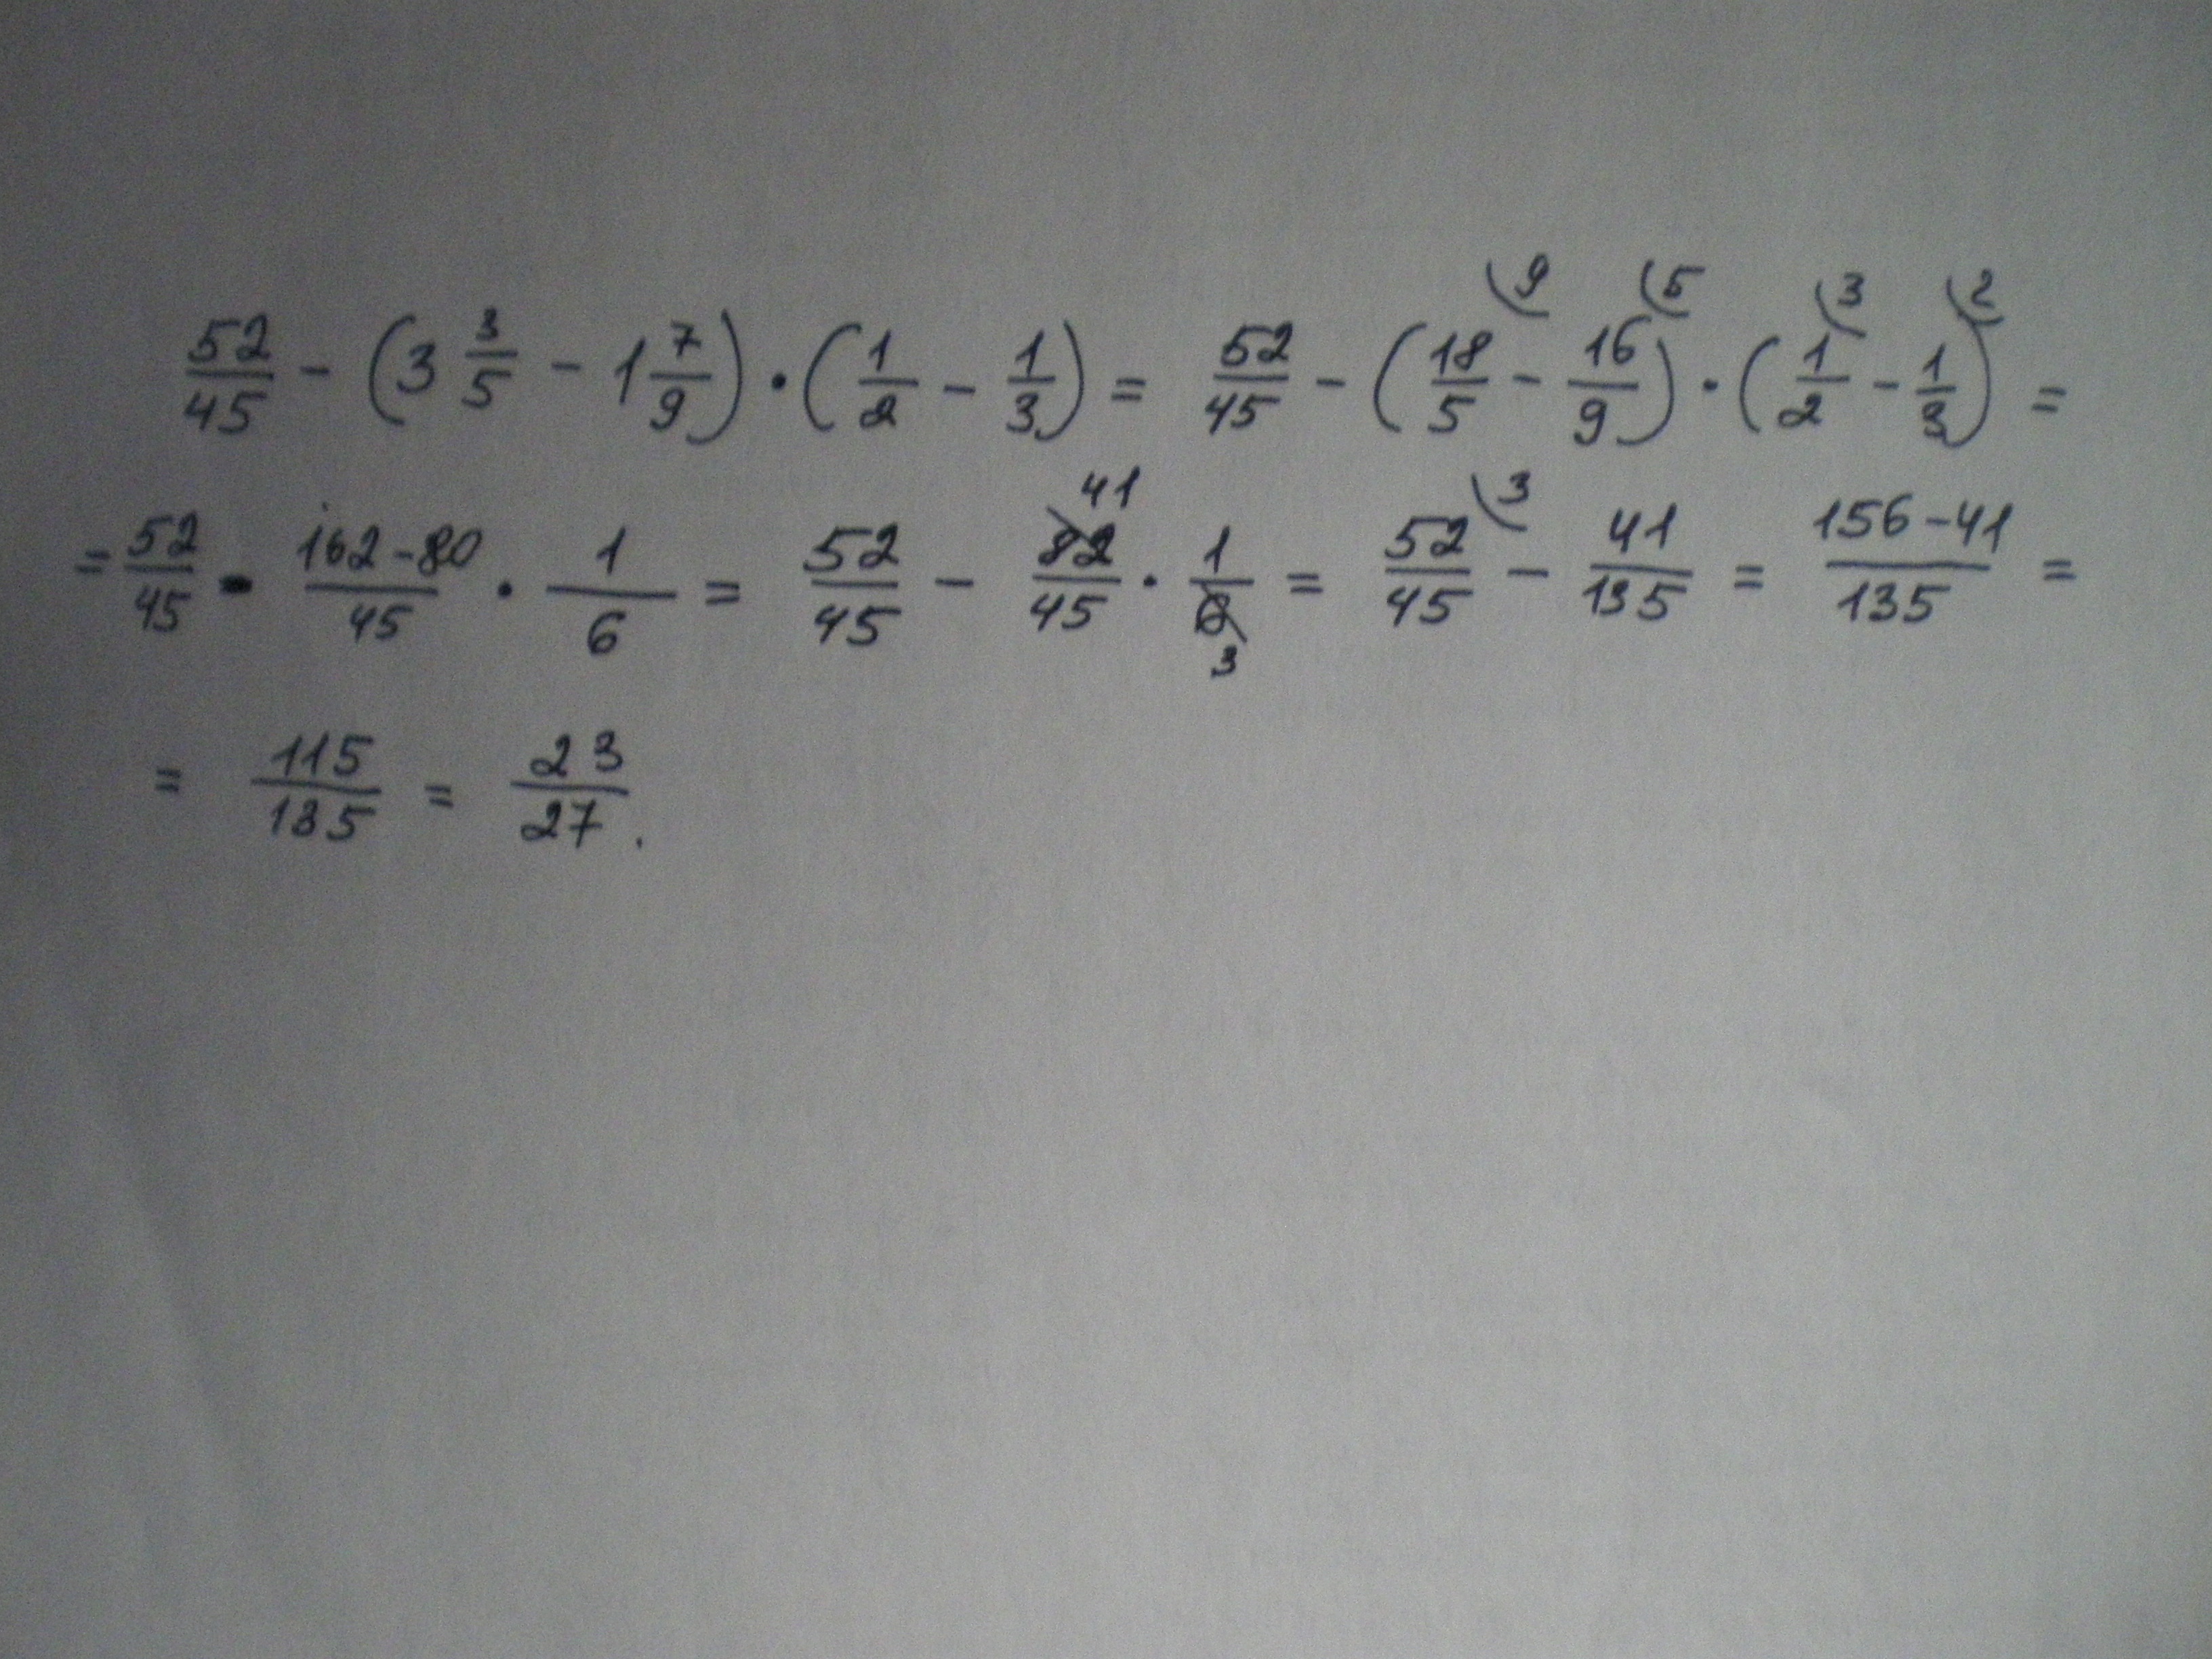 52/45 - (3 3/5 - 1 7/9) · (1/2 - 1/3) = 52/45 - (18/5 (9 - 16/9 (5) · (1/2 (3 - 1/3 (2) =
= 52/45 - 162-80/45 · 1/6 = 52/45 - 82/45 41 · 1/6 3 = 52/45 (3 - 41/135 = 156-41/135 =
= 115/135 = 23/27.